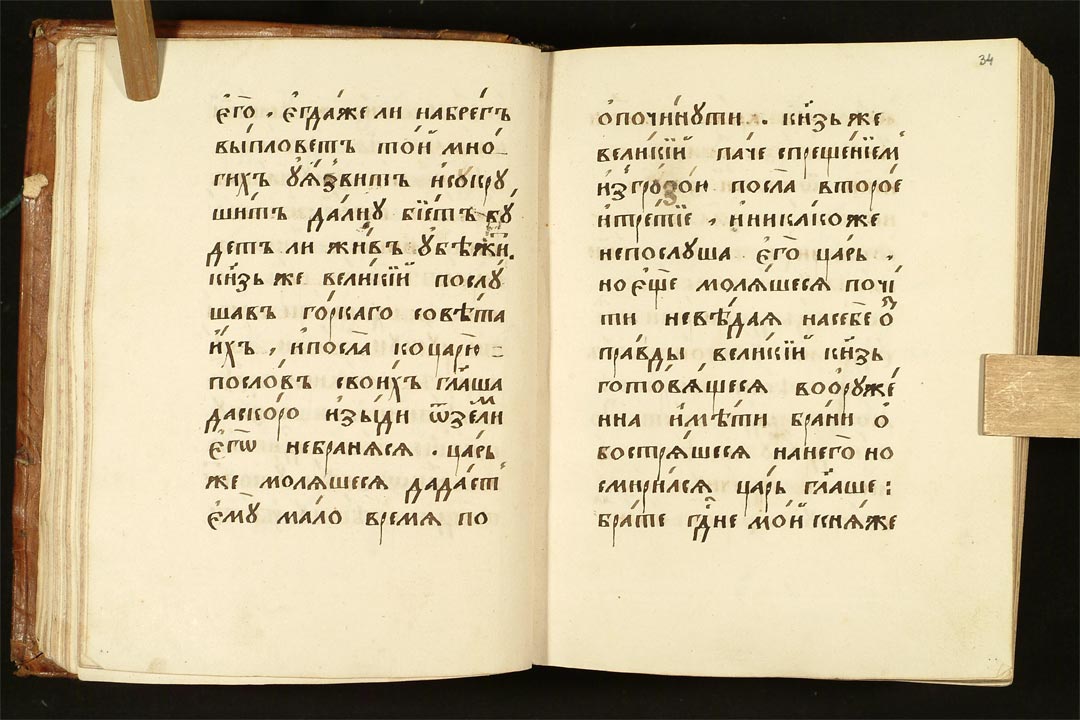 єго҃ , є҆гда́же ли набре́гъ
вы́пловетъ то́й мно
гихъ ᲂу҆́ꙗзвитъ и҆сокру
ши́тъ да́лнꙋ бїе́тъ бꙋ́
детъ ли жи́въ ᲂу҆бѣжи́.
кн҃зь же вели́кїй послꙋ́
шавъ го́ркаго совѣ́та
и҆́хъ , и҆посла̀ коцарю̀
посло́въ свои́хъ гл҃аша
даско́ро и҆зы́ди ѿземли̑
єгѡ̀ небранѧсѧ . ца́рь
же молѧ́шесѧ дада́стъ
є҆мꙋ̀ ма́ло время по
34
ѻ҆почи́нꙋти . кн҃зь же
вели́кїй паче спреще́нїем
и҆згро́зою посла̀ второ́е
и҆тре́тїе , и҆ника́коже
непослꙋша є҆го̀ ца́рь .
но є҆ще молѧ́шесѧ почи́
ти невѣ́даѧ насебѐ ѻ҆т
пра́вды вели́кїй кн҃зь
гото́вѧшесѧ воѻрꙋже́
нна и҆мѣ́ти бра́ни ѻ҆
востря́шесѧ нанего̀ но
смири́лсѧ ца́рь гл҃аше :
бра́те гд҃не мо́й кнѧ́же